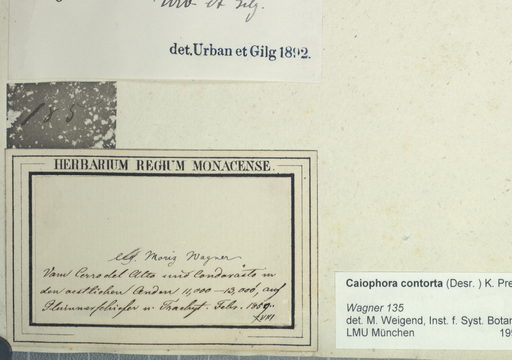 Urb et Gilg.
det. Urban et Gilg 1892.
135
HERBARIUM REGIUM MONACENSE.
leg. Moriz Wagner
Vom Cerro del Altar und Condorasto in
den oestlichen Anden 11,000 — 13,000, auf
Glimmerschiefer u. Trachyt. Febr. 1859.
XVIII
Caiophora contorta (Desr. ) K. Pre
Wagner 135
det. M. Weigend, Inst. f. Syst. Botan
LMU München 199